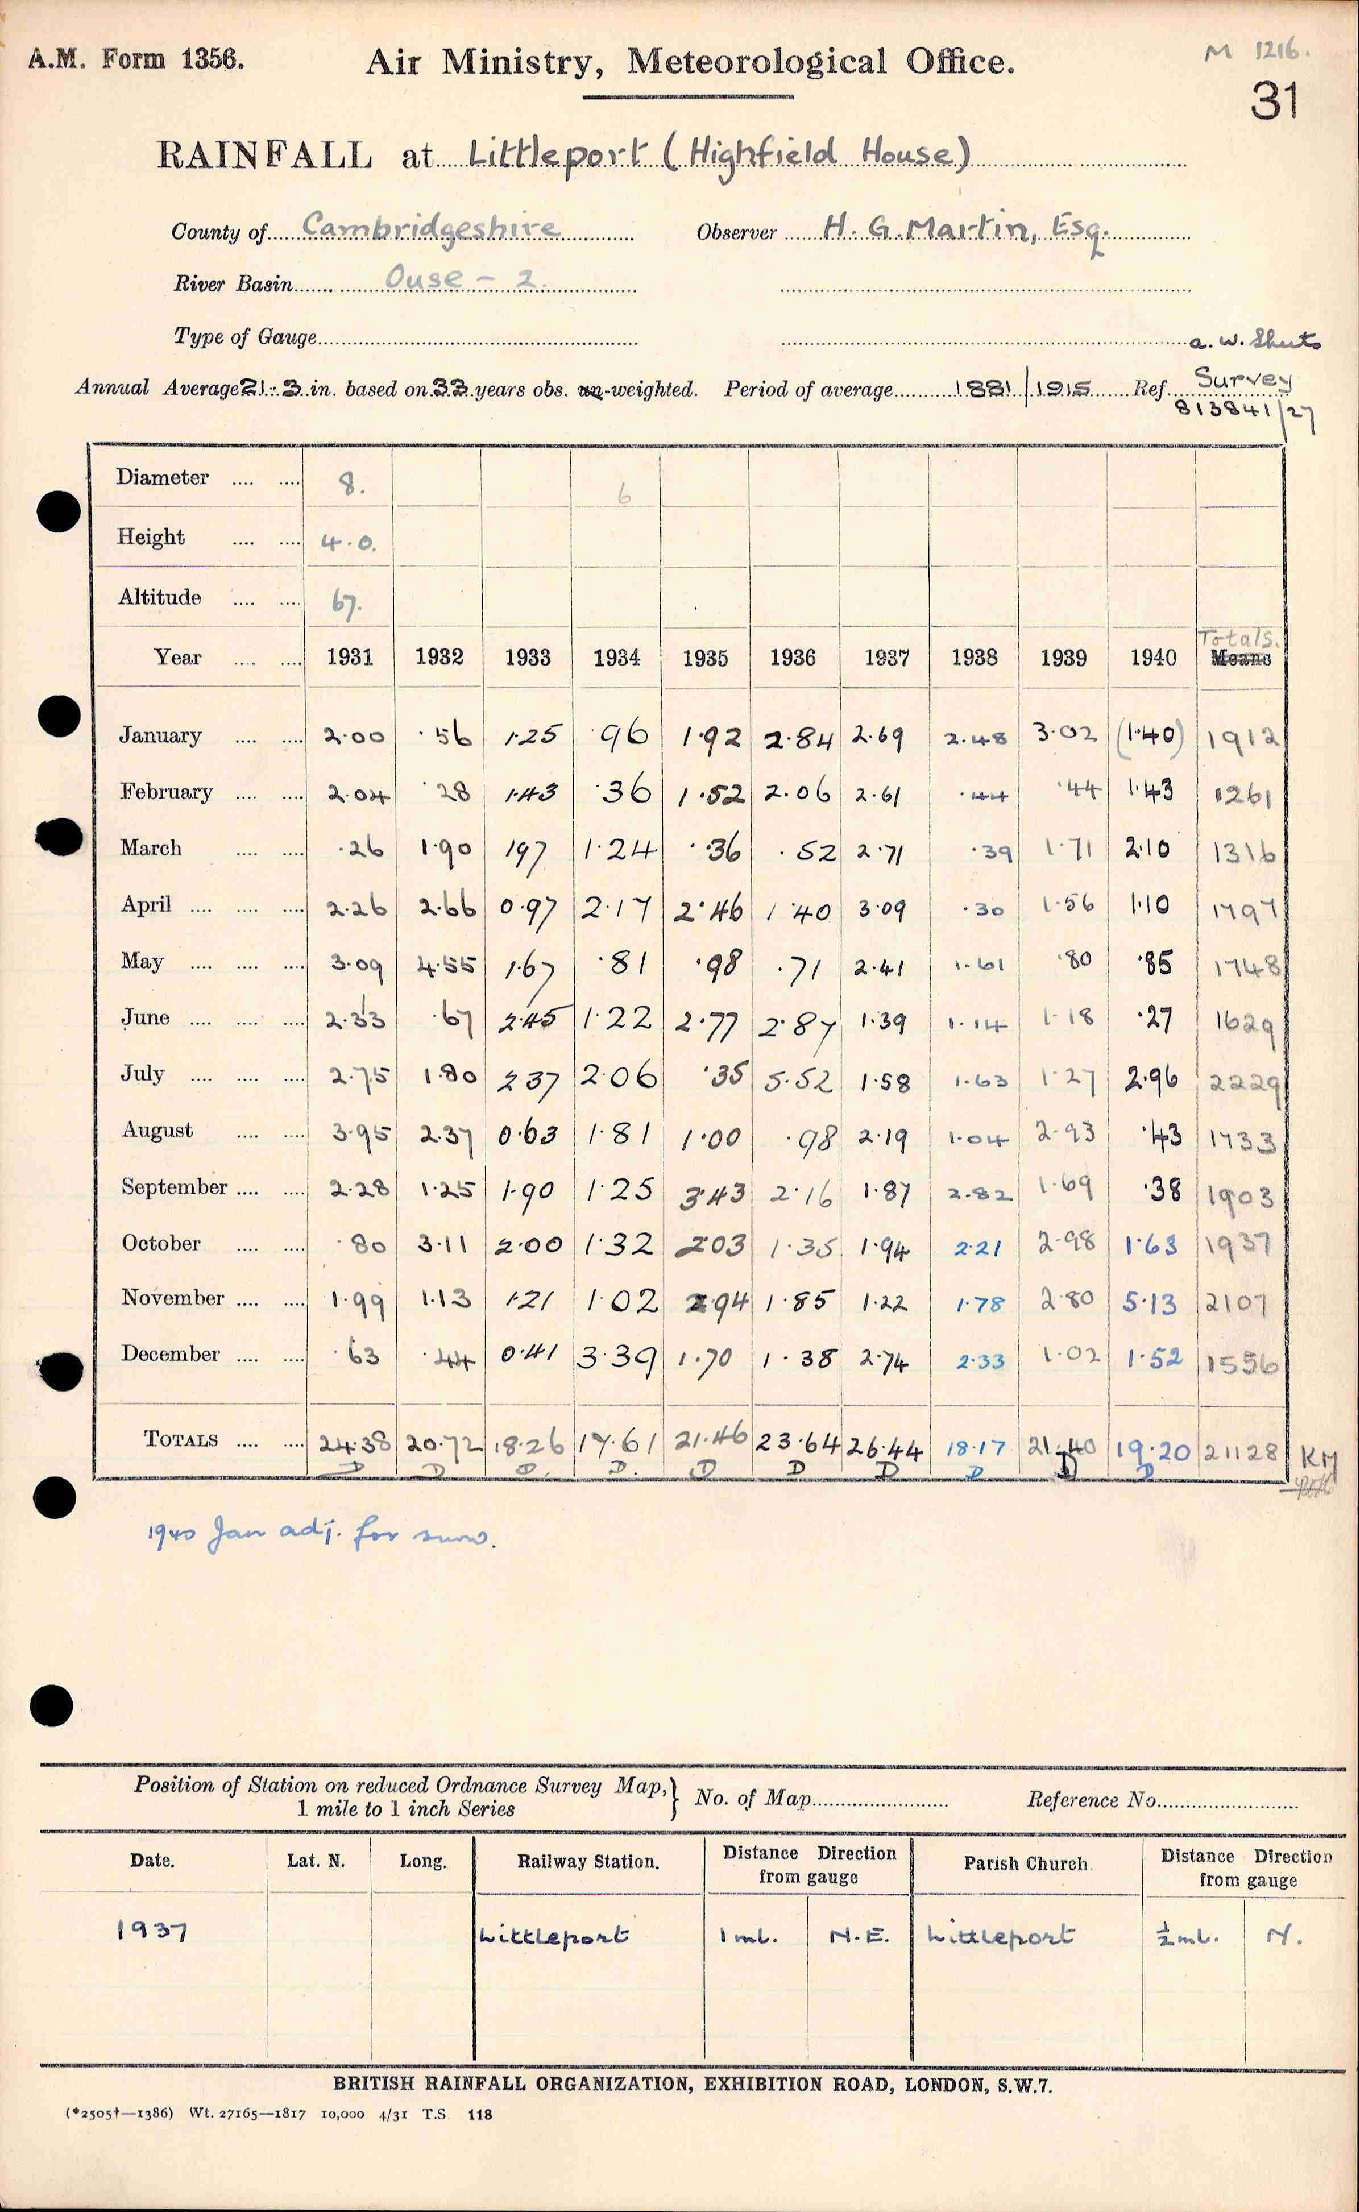 A.M. Form 1356.
Air Ministry, Meteorological Office.
M 1216.
31
RAINFALL at Littleport (Highfield House)
County of Cambridgeshire Observer H. G. Martin, Esq.
River Basin Ouse - 2.
Type of Gauge
Annual Average 21.3 in. based on 33 years obs. un-weighted. Period of average 1881/1915 Ref. Survey
813841/27
Diameter 8. 6
Height 4.0.
Altitude 67.
Totals.
Year 1931 1932 1933 1934 1935 1936 1937 1938 1939 1940 Means
January 2.00 .56 1.25 .96 1.92 2.84 2.69 2.48 3.02 (1.40) 1912
February 2.04 .28 1.43 .36 1.52 2.06 2.61 .44 .44 1.43 1261
March .26 1.90 197 1.24 .36 .52 2.71 .39 1.71 2.10 1316
April 2.26 2.66 0.97 2.17 2.46 1.40 3.09 .30 1.56 1.10 1797
May 3.09 4.55 1.67 .81 .98 .71 2.41 1.61 .80 .85 1748
June 2.33 .67 2.45 1.22 2.77 2.87 1.39 1.14 1.18 .27 1629
July 2.75 1.80 2.37 2.06 .35 5.52 1.58 1.63 1.27 2.96 2229
August 3.95 2.37 0.63 1.81 1.00 .98 2.19 1.04 2.93 .43 1733
September 2.28 1.25 1.90 1.25 3.43 2.16 1.87 2.82 1.69 .38 1903
October .80 3.11 2.00 1.32 2.03 1.35 1.94 2.21 2.98 1.63 1937
November 1.99 1.13 1.21 1.02 2.94 1.85 1.22 1.78 2.80 5.13 2107
December .63 .44 0.41 3.39 1.70 1.38 2.74 2.33 1.02 1.52 1556
TOTALS 24.38 20.72 18.26 17.61 21.46 23.64 26.44 18.17 21.40 19.20 21128 KM
D D D. D. D D D D D D
1940 Jan adj. for snow.
Position of Station on reduced Ordnance Survey Map,
1 mile to 1 inch Series
No. of Map Reference No.
Date. Lat. N. Long. Railway Station. Distance Direction from gauge Parish Church. Distance Direction from gauge
1937 Littleport 1 ml. N.E. Littleport ½ ml. N.
BRITISH RAINFALL ORGANIZATION, EXHIBITION ROAD, LONDON, S.W.7.
(*2505†—1386) Wt. 27165—1817 10,000 4/31 T.S. 118